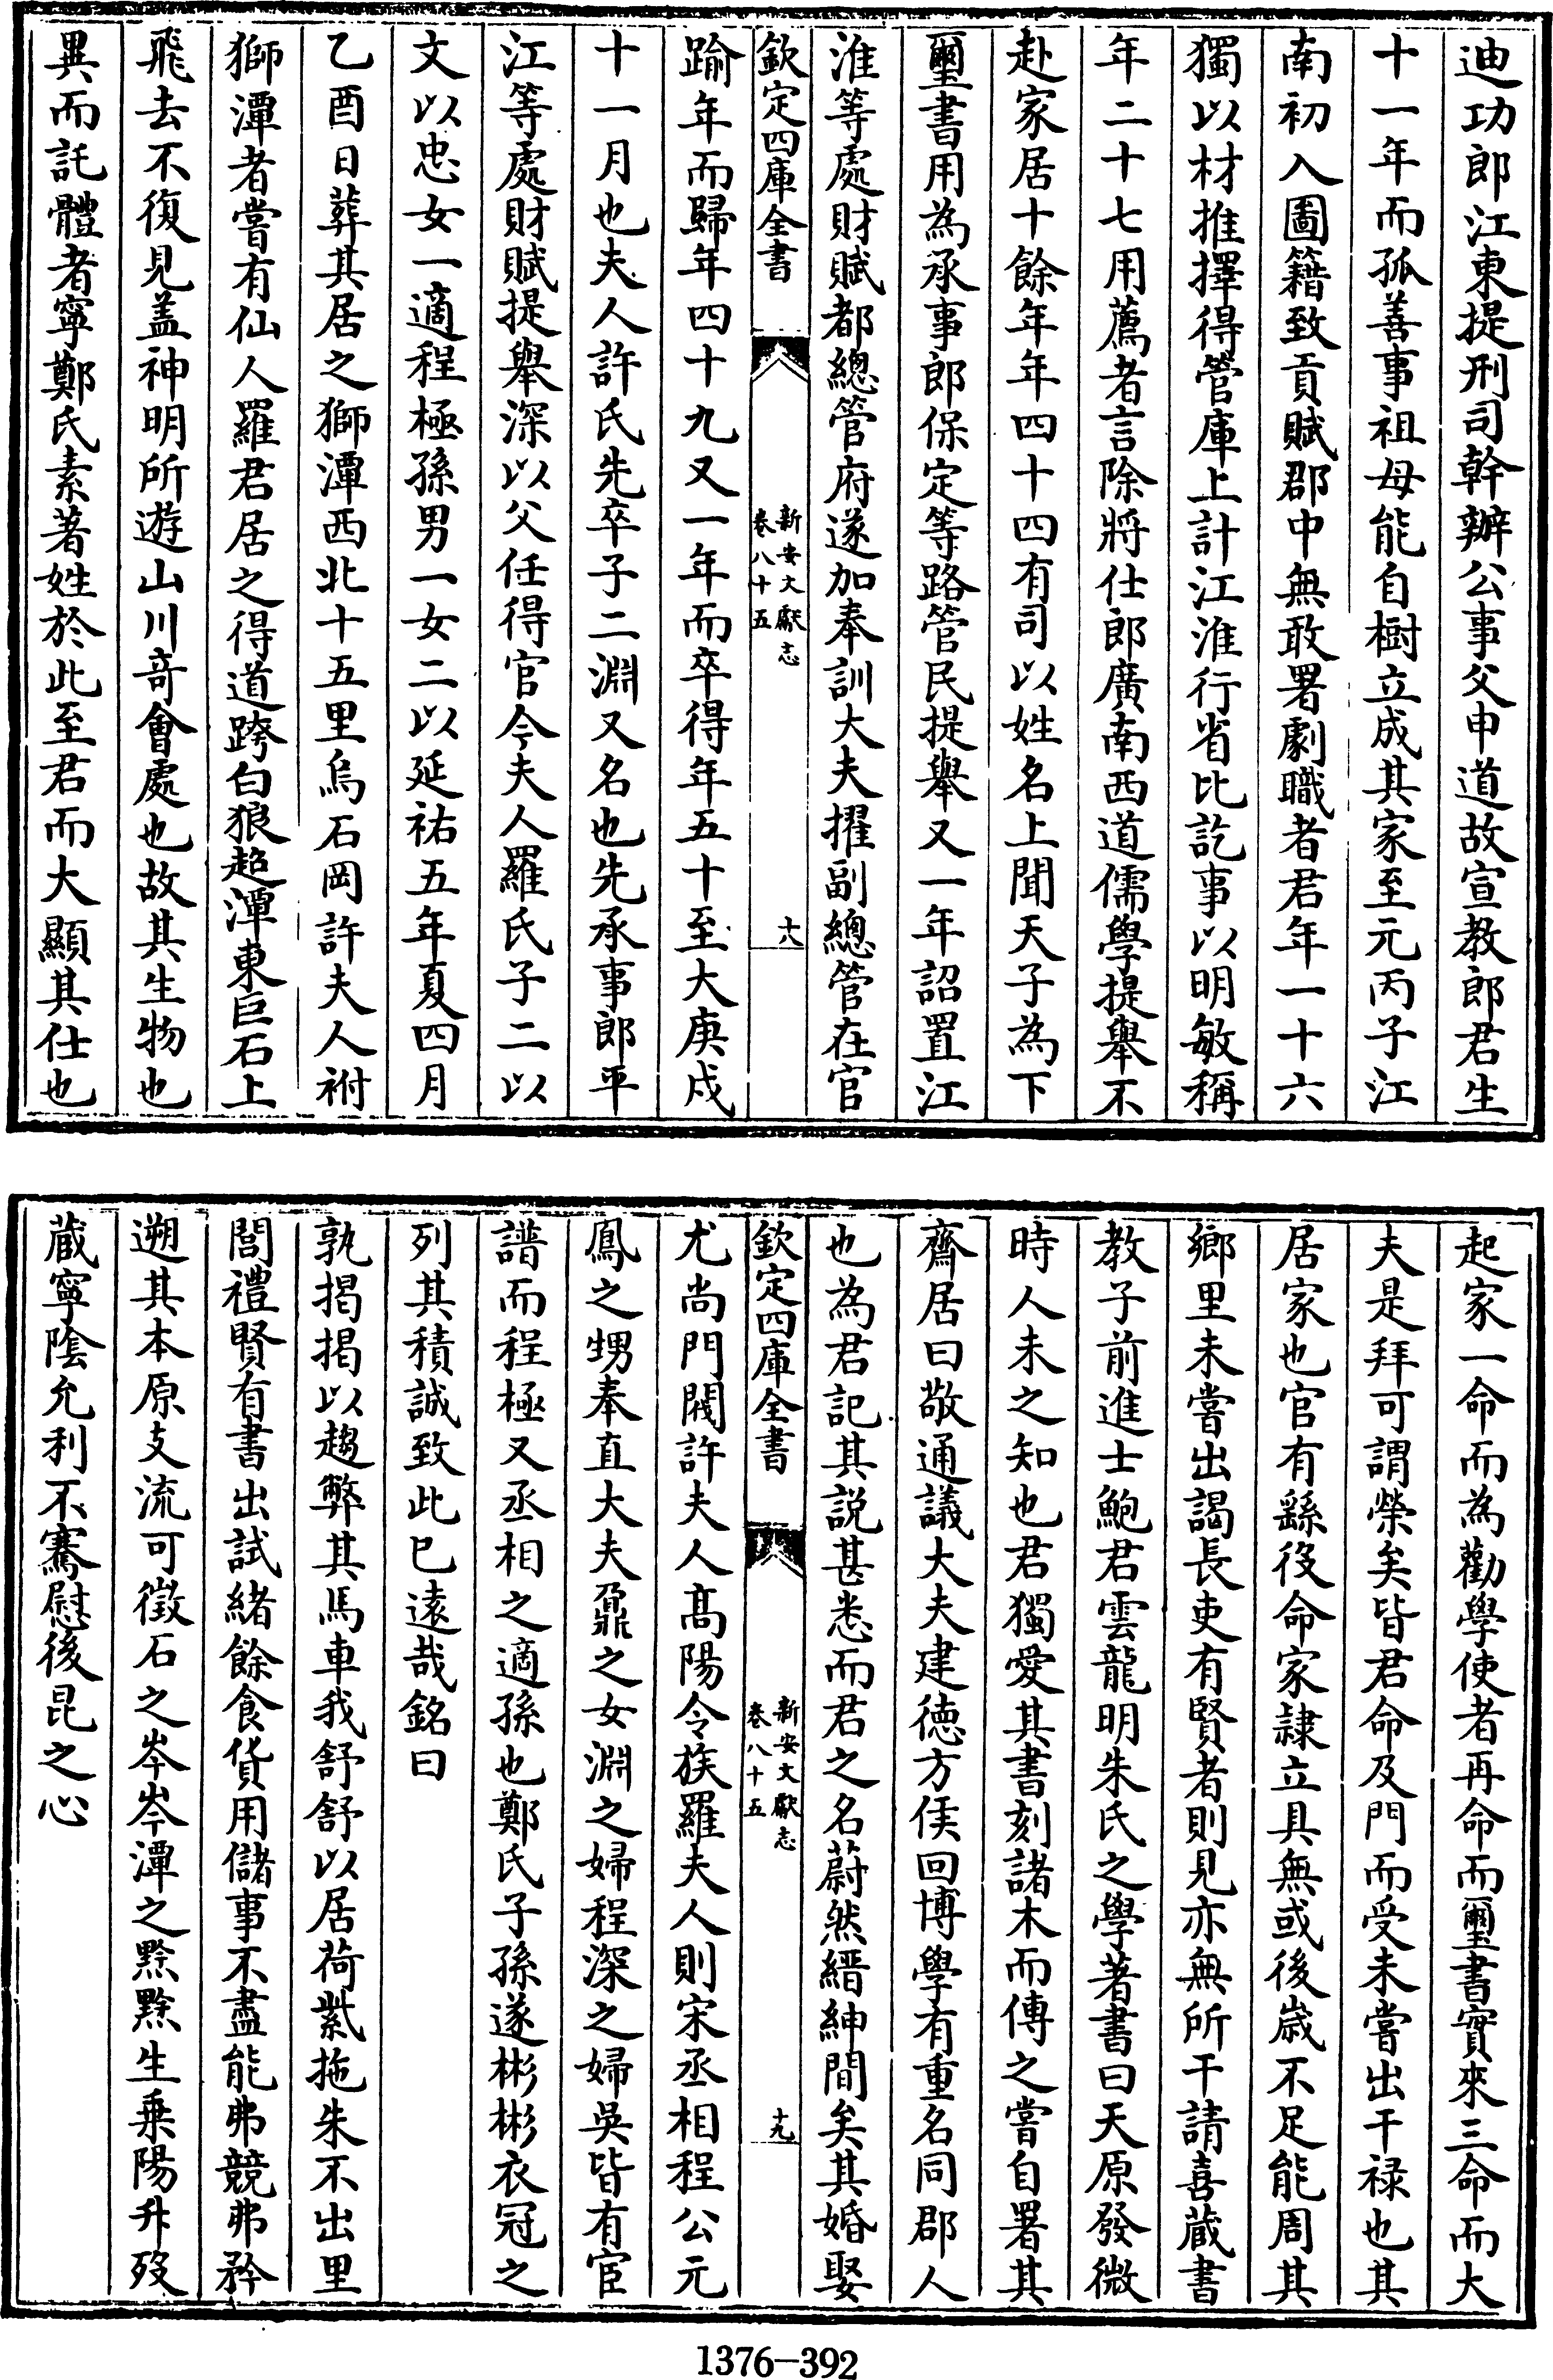 迪功郎江東提刑司幹辦公事父申道故宣教郎君生
十一年而孤善事祖母能自樹立成其家至元丙子江
南初入圖籍致貢賦郡中無敢署劇職者君年一十六
獨以材推擇得管庫上計江淮行省比訖事以明敏稱
年二十七用薦者言除將仕郎廣南西道儒學提舉不
赴家居十餘年年四十四有司以姓名上聞天子為下
璽書用為承事郎保定等路管民提舉又一年詔置江
淮等處財賦都總管府遂加奉訓大夫擢副總管在官
欽定四庫全書
新安文獻志
卷八十五
十八
踰年而歸年四十九又一年而卒得年五十至大庚戌
十一月也夫人許氏先卒子二淵又名也先承事郎平
江等處財賦提舉深以父任得官今夫人羅氏子二以
文以忠女一適程極孫男一女二以延祐五年夏四月
乙酉日葬其居之獅潭西北十五里烏石岡許夫人祔
獅潭者嘗有仙人羅君居之得道跨白狼超潭東巨石上
飛去不復見盖神明所遊山川竒會處也故其生物也
異而託體者寧鄭氏素著姓於此至君而大顯其仕也
起家一命而為勸學使者再命而璽書實來三命而大
夫是拜可謂榮矣皆君命及門而受未嘗出干禄也其
居家也官有繇役命家隷立具無或後歳不足能周其
鄉里未嘗出謁長吏有賢者則見亦無所干請喜蔵書
教子前進士鮑君雲龍明朱氏之學著書曰天原發微
時人未之知也君獨愛其書刻諸木而傳之嘗自署其
齋居曰敬通議大夫建徳方侯回博學有重名同郡人
也為君記其説甚悉而君之名蔚然縉紳間矣其婚娶
欽定四庫全書
新安文獻志
卷八十五
十九
尤尚門閥許夫人髙陽令族羅夫人則宋丞相程公元
鳳之甥奉直大夫鼐之女淵之婦程深之婦吳皆有宦
譜而程極又丞相之適孫也鄭氏子孫遂彬彬衣冠之
列其積誠致此已逺哉銘曰
孰揭揭以趨弊其馬車我舒舒以居荷紫拖朱不出里
閭禮賢有書出試緒餘食貨用儲事不盡能弗競弗矜
遡其本原支流可徵石之岑岑潭之黕黕生乗陽升歿
蔵寧隂允利不騫慰後昆之心
1376-392